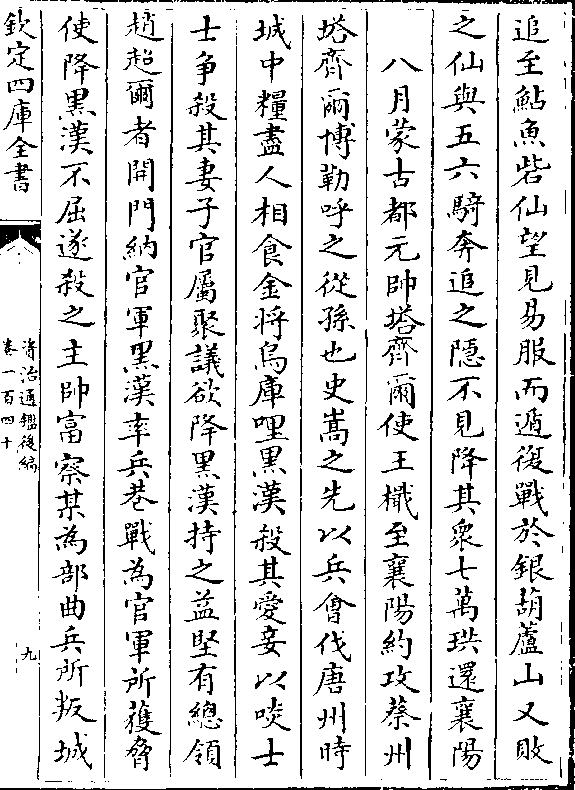 追至鮎魚砦仙望見易服而遁復戰於銀葫蘆山又敗
之仙與五六騎奔追之隱不見降其衆七萬珙還襄陽
八月蒙古都元帥塔齊爾使王檝至襄陽約攻蔡州
塔齊爾博勒呼之從孫也史嵩之先以兵會伐唐州時
城中糧盡人相食金將烏庫哩黑漢殺其愛妾以啖士
士爭殺其妻子官屬聚議欲降黑漢持之益堅有總領
趙超爾者開門納官軍黑漢率兵巷戰為官軍所獲脅
使降黑漢不屈遂殺之主帥富察某為部曲兵所叛城
欽定四庫全書
資治通鑑後編
卷一百四十
九